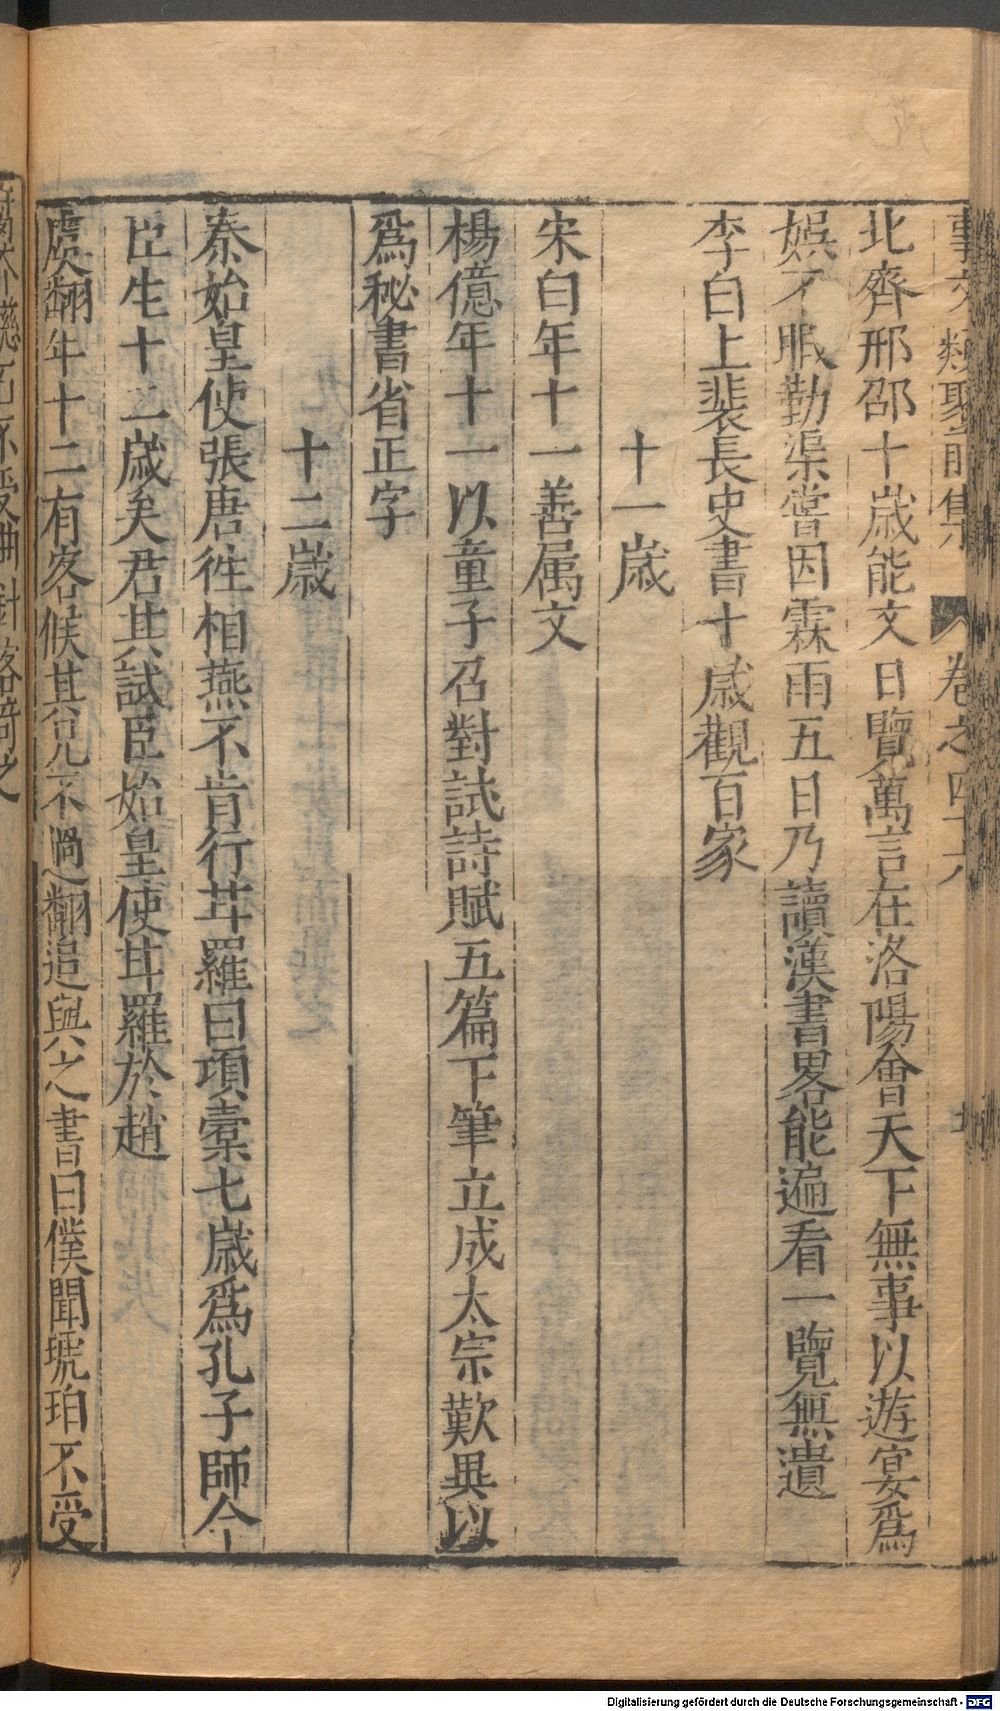 事文類聚前集 卷之四十八
北齊邢邵十歲能文日覽萬言在洛陽會天下無事以遊宴爲
娯不暇勤渠嘗因霖雨五日乃讀漢書畧能遍看一覽無遺
李白上裴長史書十歲觀百家
十一歲
宋白年十一善属文
楊億年十一以童子召對試詩賦五篇下筆立成太宗歎異以
爲秘書省正字
十二歲
秦始皇使張唐徃相燕不肯行甘羅曰項槖七歲爲孔子師今
臣生十二歲矣君其試臣始皇使甘羅於趙
虞翻年十二有客候其兄不過翻追與之書曰僕聞琥珀不受
Digitalisierung gefördert durch die Deutsche Forschungsgemeinschaft - DFG